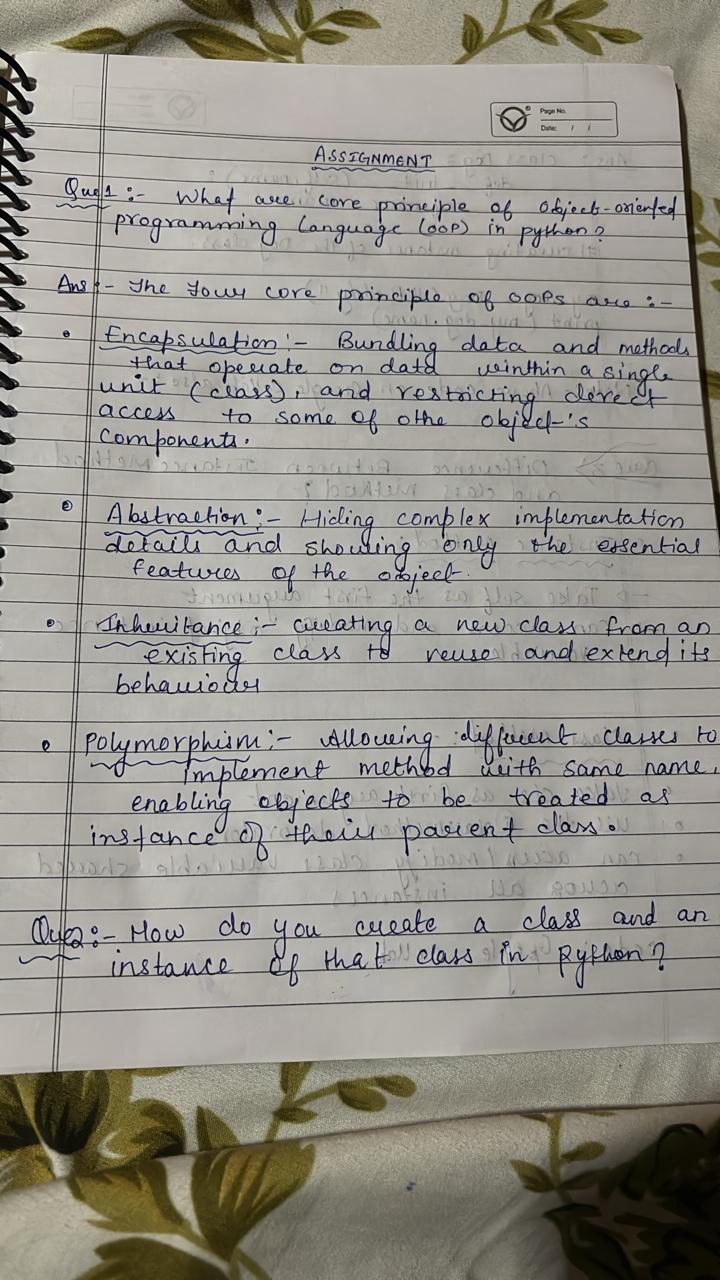 Page No.
Date: / /
ASSIGNMENT
Que1:- What are core principle of object-oriented
programming Language (OOP) in python?
Ans:- The Four core principle of OOPs are :-
• Encapsulation :- Bundling data and methods
that operate on data winthin a single
unit (class), and restricting direct
access to some of othe object's
components.
• Abstraction :- Hiding complex implementation
details and showing only the essential
features of the object.
• Inheritance :- creating a new class from an
existing class to reuse and extend its
behaviours
• Polymorphism:- Allowing different classes to
implement method with same name,
enabling objects to be treated as
instance of their parent class.
Que2:- How do you create a class and an
instance of that class in python?